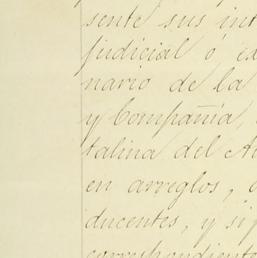 sente sus int
judicial ó ex
nario de la
y Compañía,
talina del Au
en arreglos, c
ducentes, y si
correspondiente